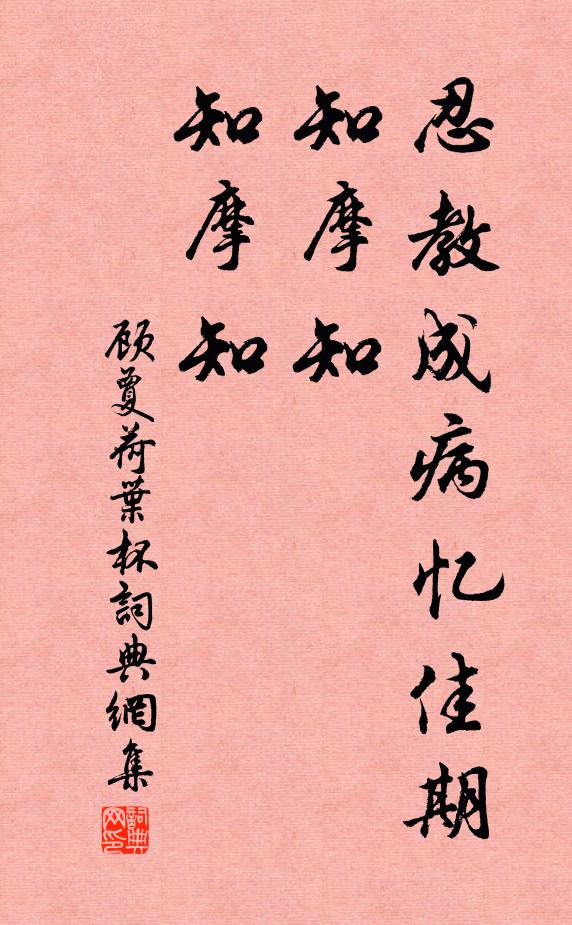 忍教成病忆佳期
知摩知
知摩知
顾夐荷葉杯詞典網集
詞典网印